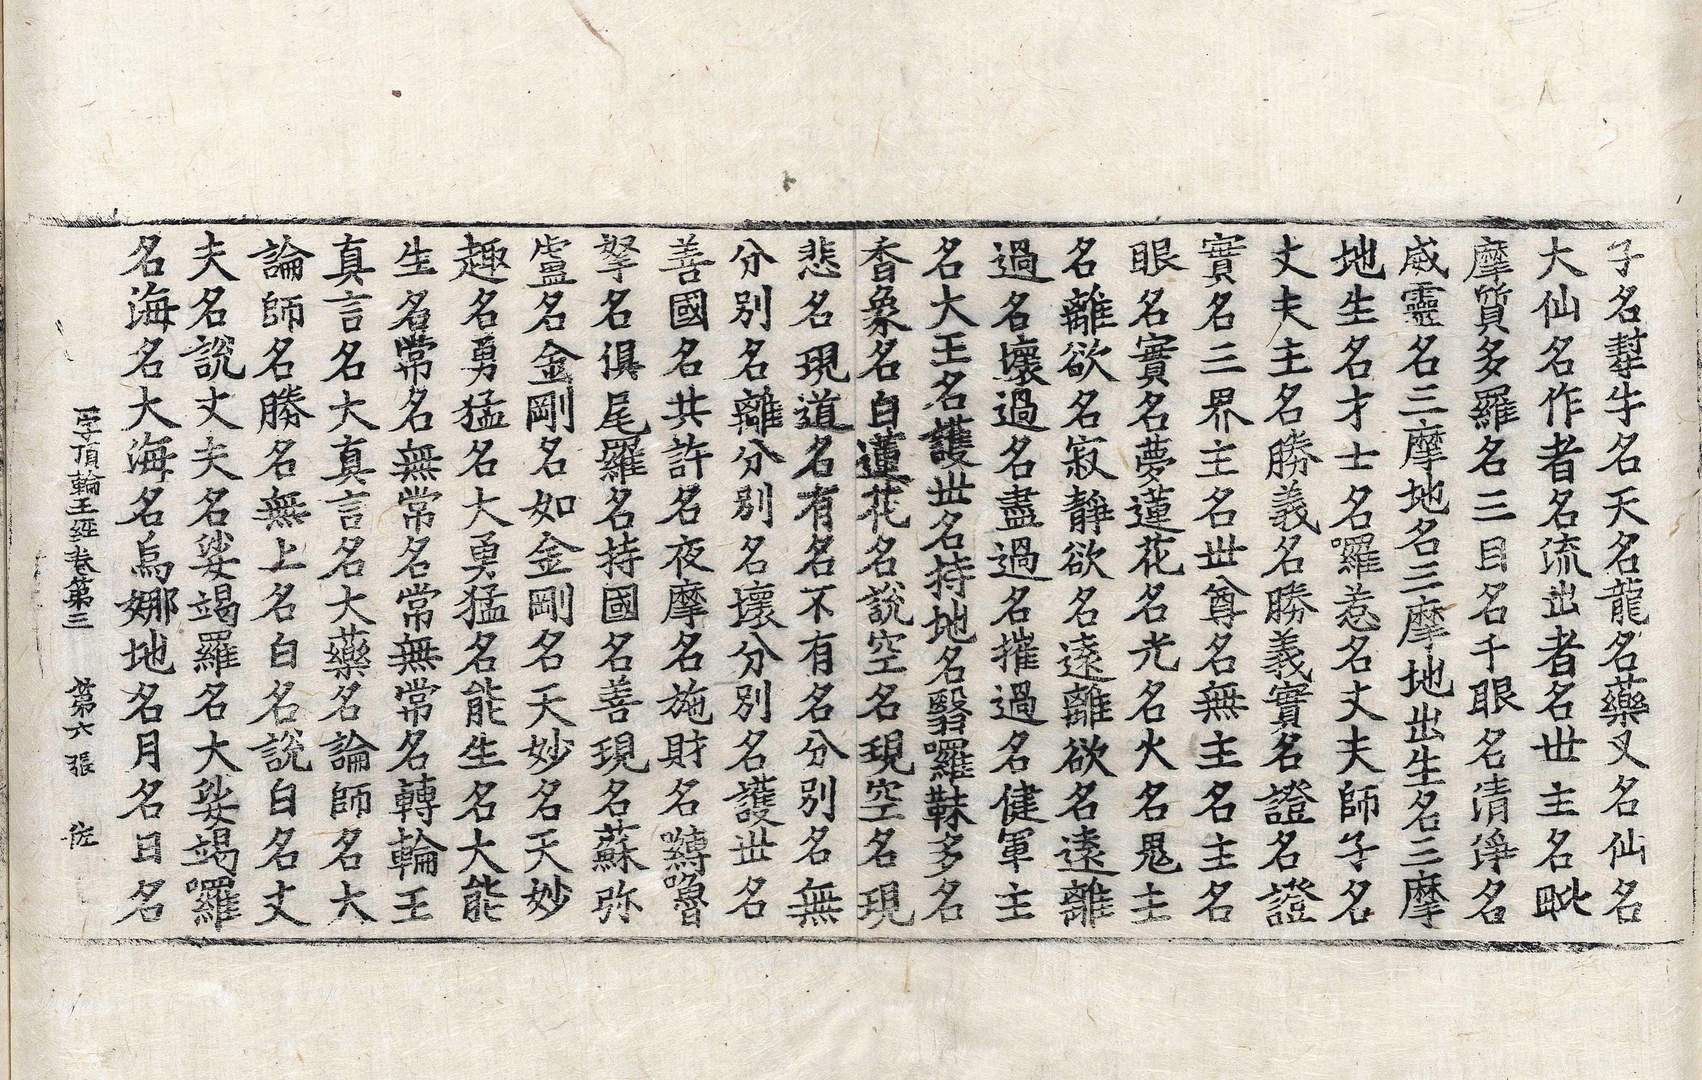 子名犎牛名天名龍名藥叉名仙名
大仙名作者名流出者名世主名毗
摩質多羅名三目名千眼名清淨名
威靈名三摩地名三摩地出生名三摩
地生名才士名囉惹名丈夫師子名
丈夫主名勝義名勝義實名證名證
實名三界主名世尊名無主名主名
眼名實名夢蓮花名光名火名鬼主
名離欲名寂靜欲名遠離欲名遠離
過名壞過名盡過名摧過名健軍主
名大王名護世名持地名翳囉靺多名
香象名白蓮花名說空名現空名現
悲名現道名有名不有名分別名無
分別名離分別名壞分別名護世名
善國名共許名夜摩名施財名嚩嚕
拏名俱尾羅名持國名善現名蘇弥
盧名金剛名如金剛名天妙名天妙
趣名勇猛名大勇猛名能生名大能
生名常名無常名常無常名轉輪王
真言名大真言名大藥名論師名大
論師名勝名無上名白名說白名丈
夫名說丈夫名娑竭羅名大娑竭囉
名海名大海名烏娜地名月名日名
一字頂輪王經卷第三 第六張 佐